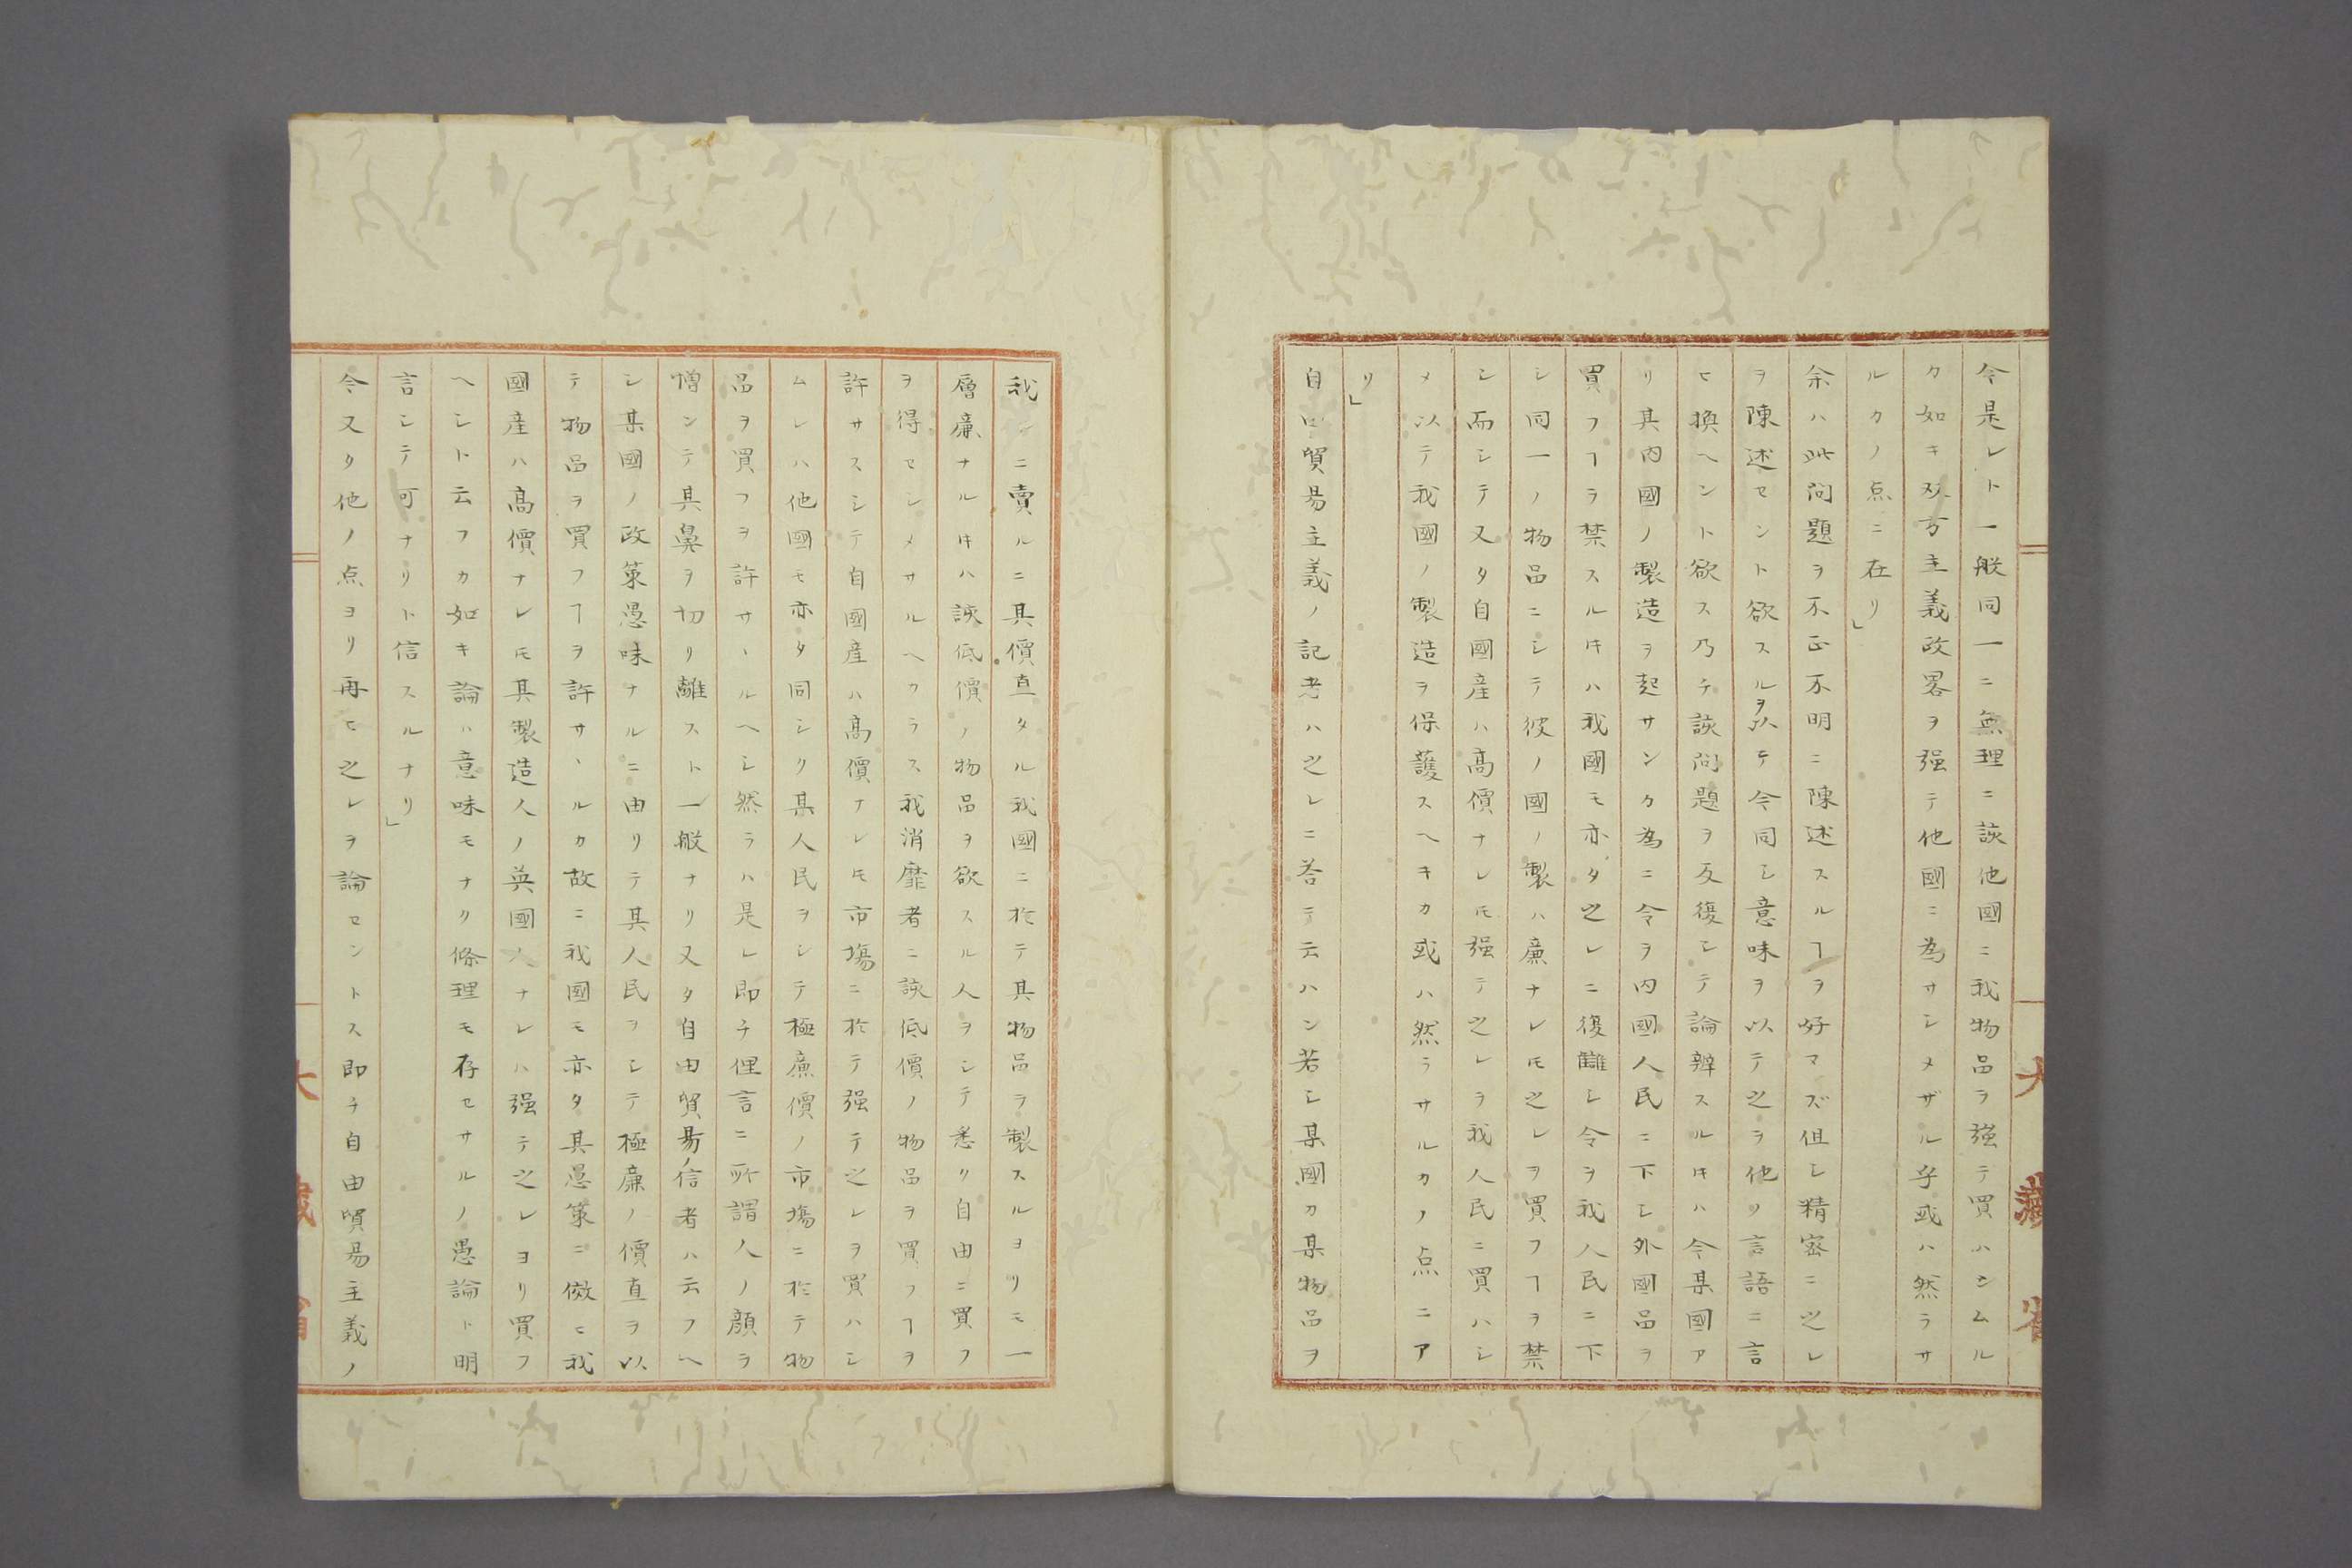 今是レト一般同一ニ無理ニ該他國ニ我物品ヲ强テ買ハシムル
カ如キ双方主義政畧ヲ强テ他國ニ為サシメザル乎或ハ然ラサ
ルカノ点ニ在リ」
余ハ此問題ヲ不正不明ニ陳述スルヿヲ好マズ但シ精密ニ之レ
ヲ陳述セント欲スルヲ以テ今同シ意味ヲ以テ之ヲ他ノ言語ニ言
ヒ換ヘント欲ス乃チ該問題ヲ反復シテ論辨スルキハ今某國ア
リ其内國ノ製造ヲ起サンカ為ニ令ヲ内國人民ニ下シ外國品ヲ
買フヿヲ禁スルキハ我國モ亦タ之レニ復讎シ令ヲ我人民ニ下
シ同一ノ物品ニシテ彼ノ國ノ製ハ廉ナレモ之レヲ買フヿヲ禁
シ而シテ又タ自國産ハ高價ナレモ强テ之レヲ我人民ニ買ハシ
メ以テ我國ノ製造ヲ保護スヘキカ或ハ然ラサルカノ点ニア
リ」
自由貿易主義ノ記者ハ之レニ荅テ云ハン若シ某國カ某物品ヲ
我レニ賣ルニ其價直タル我國ニ於テ其物品ヲ製スルヨリモ一
層廉ナルキハ該低價ノ物品ヲ欲スル人ヲシテ悉ク自由ニ買フ
ヲ得セシメサルヘカラス我消靡者ニ該低價ノ物品ヲ買フヿヲ
許サスシテ自國産ハ高價ナレモ市塲ニ於テ强テ之レヲ買ハシ
ムレハ他國モ亦タ同シク其人民ヲシテ極廉價ノ市塲ニ於テ物
品ヲ買フヲ許サヽルヘシ然ラハ是レ即チ俚言ニ所謂人ノ顔ヲ
憎ンテ其鼻ヲ切リ離スト一般ナリ又タ自由貿易ノ信者ハ云フヘ
シ某國ノ政策愚味ナルニ由リテ其人民ヲシテ極廉ノ價直ヲ以
テ物品ヲ買フヿヲ許サヽルカ故ニ我國モ亦タ其愚策ニ倣ヒ我
國産ハ高價ナレモ其製造人ノ英國人ナレハ强テ之レヨリ買フ
ヘシト云フカ如キ論ハ意味モナク條理モ存セサルノ愚論ト明
言シテ可ナリト信スルナリ」
今又タ他ノ点ヨリ再ヒ之レヲ論セントス即チ自由貿易主義ノ
大藏省